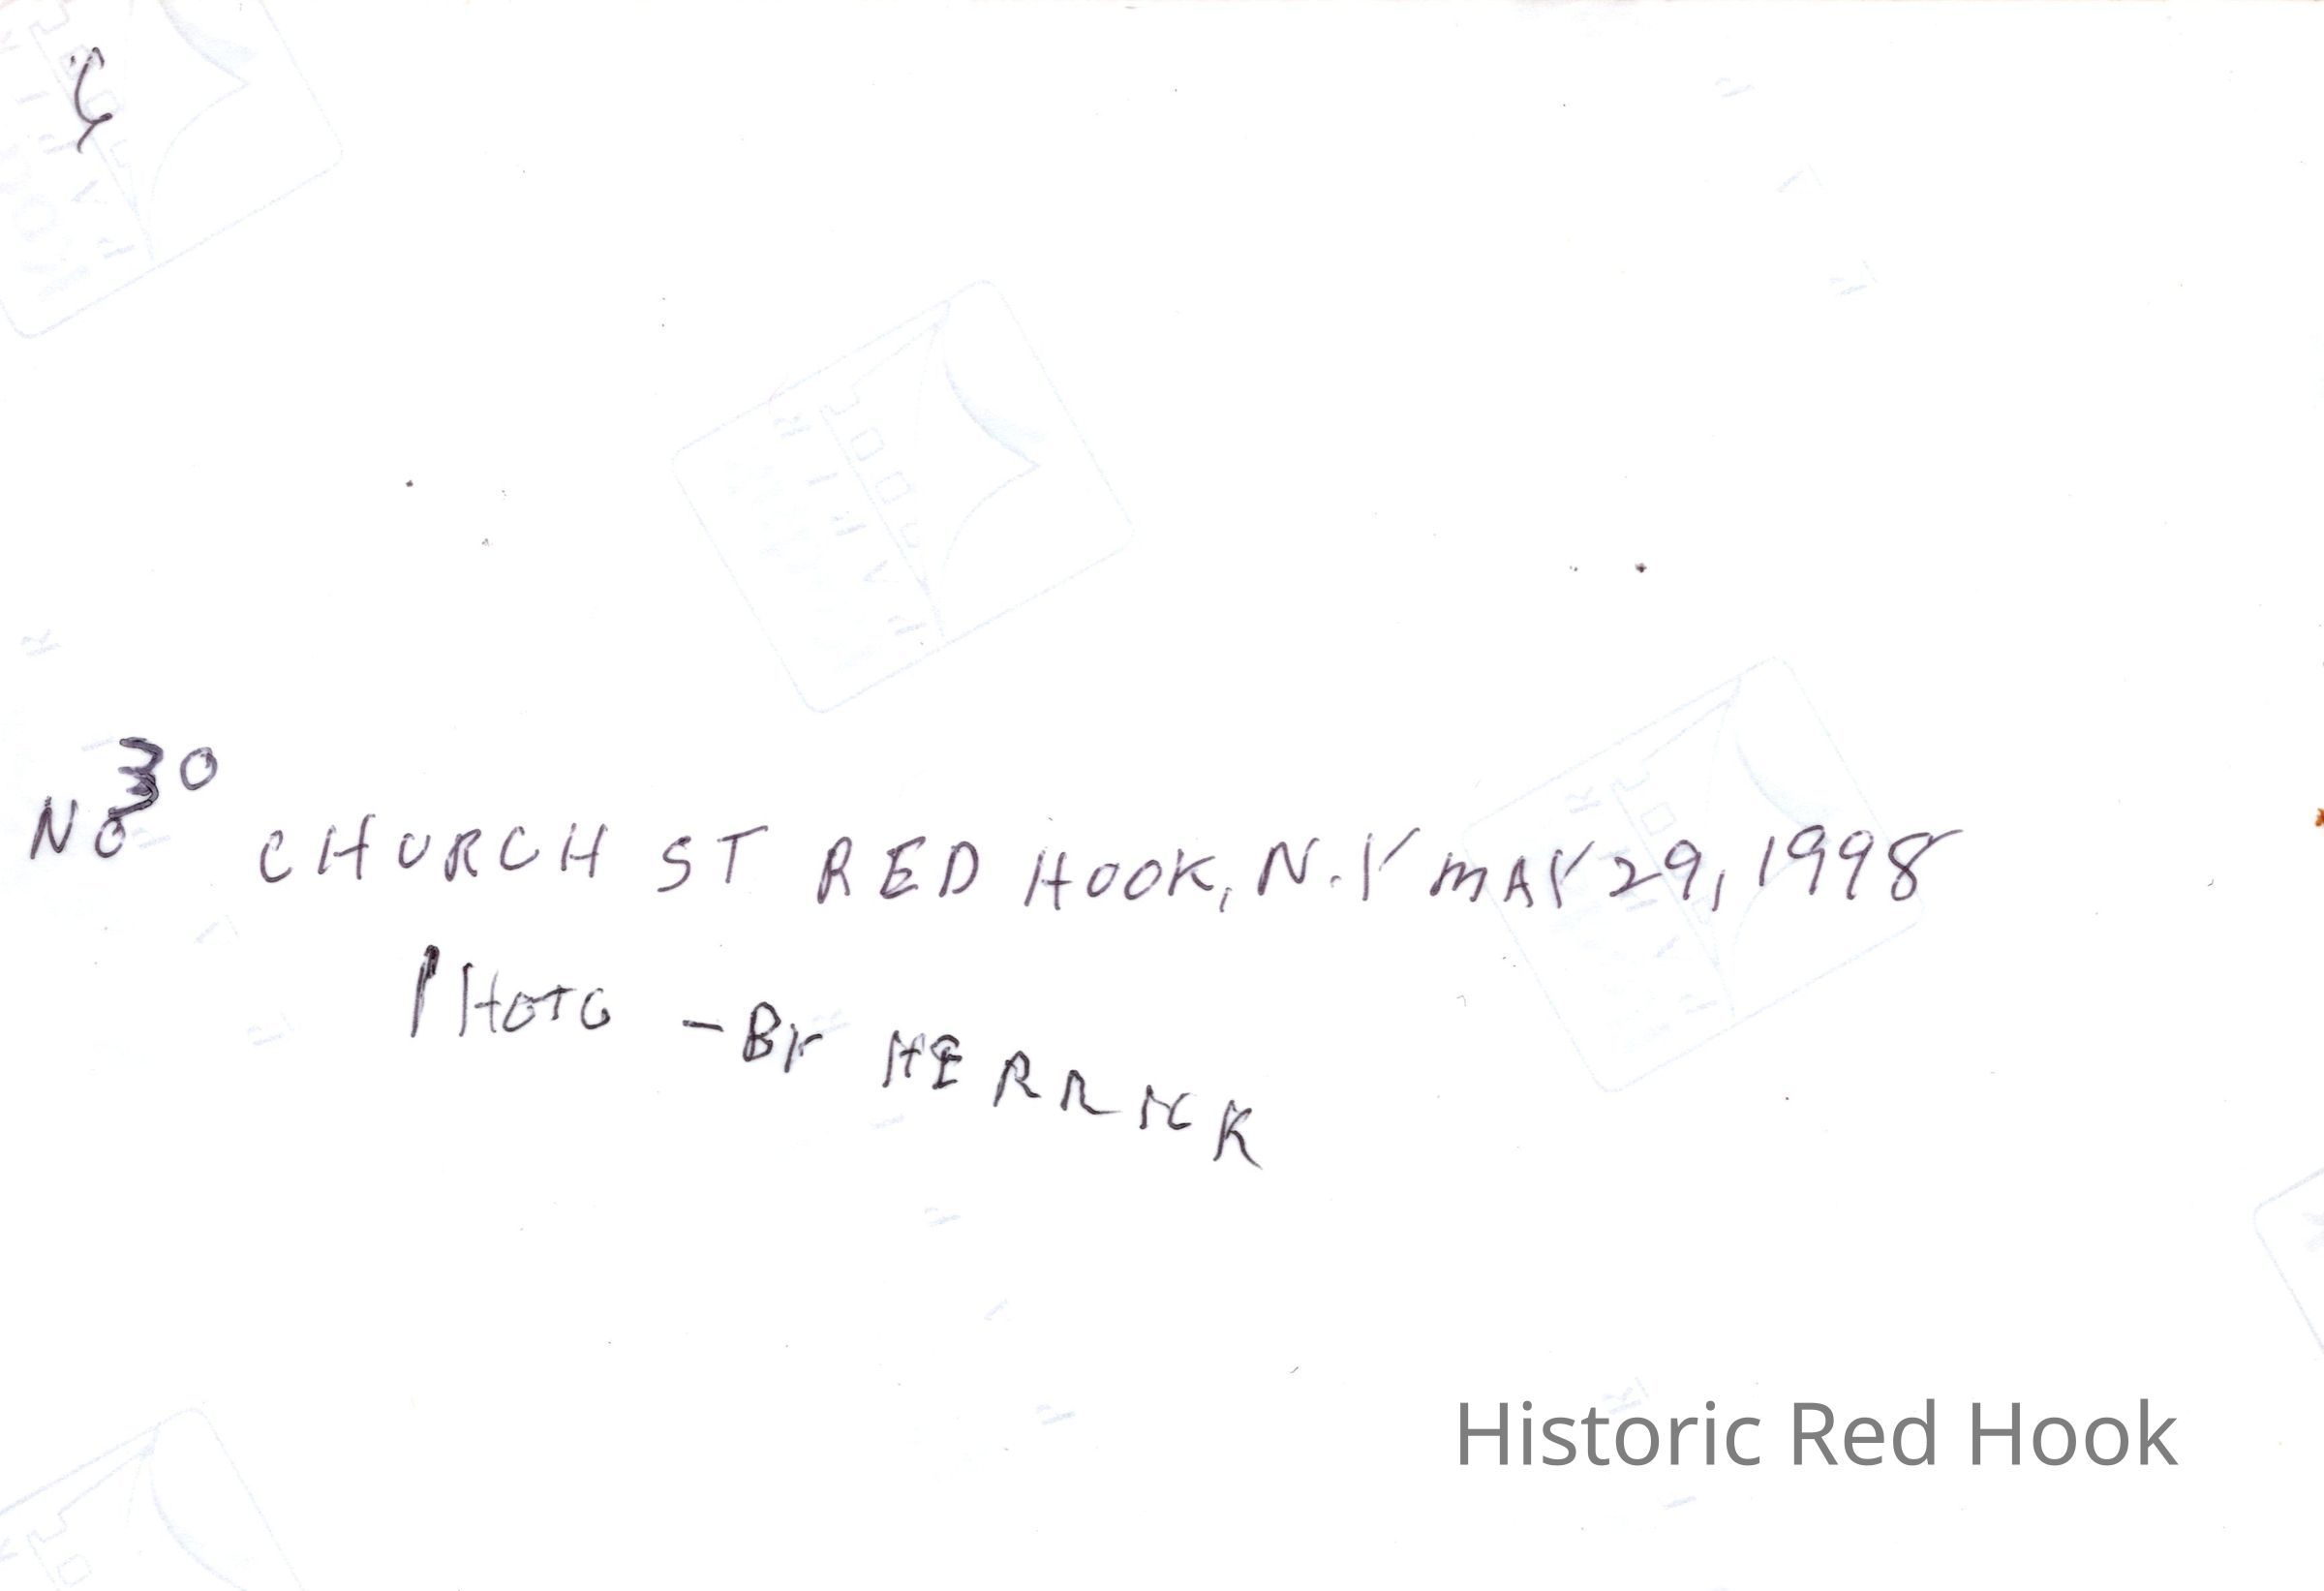 No 30 CHURCH ST RED HOOK, N.Y MAY 29, 1998
PHOTO - BY HERRICK
Historic Red Hook